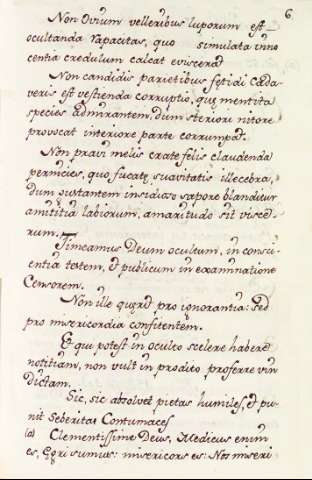 6
Non Ovium velleribus luporum est
ocultanda rapacitas, quo simulata inno
centia credulum calcat eviscerad
Non candidis parietibus fętidi Cada
veris est vestienda corruptio, quę mentita
species admirantem, dum exteriori nitore
provocat interiore parte corrumpat.
Non pravi melis crate felis claudenda
pernicies, quo fucatę suavitatis illecebra,
dum gustantem insidioso sapore blanditur
amititia labiorum, amaritudo sit visce
rum.
Timeamus Deum ocultum, in consci
entia testem, et publicum in examinatione
Censorem.
Non ille quęrit pro ignorantia: Sed
pro misericordia confitentem.
Et qui potest in oculto scelere habere
notitiam, non vult in prodito proferre vin
Dictam.
Sic, sic absolvet pietas humiles, et pu
nit Seberitas Contumaces
(a) Clementissime Deus, Medicus enim
es, Ęgri sumus: misericors es: Nos miseri